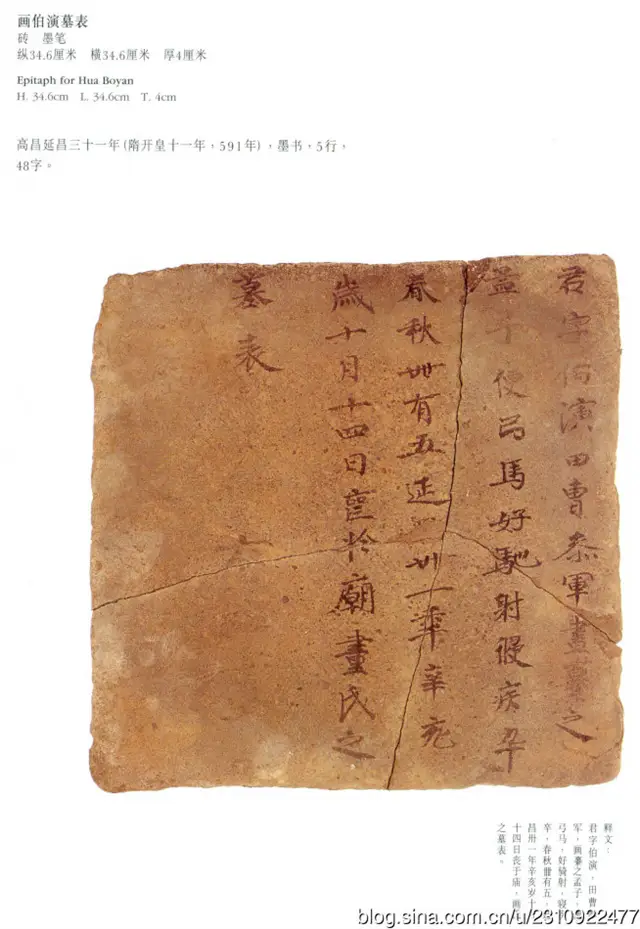 画伯演墓表
砖 墨笔
纵34.6厘米 横34.6厘米 厚4厘米
Epitaph for Hua Boyan
H. 34.6cm L. 34.6cm T. 4cm
高昌延昌三十一年(隋开皇十一年，591年)，墨书，5行，
48字。
君字伯演田曹叅軍畫纂之
孟子便弓馬好馳射寢疾卒
春秋卌有五延卅一年辛亥
歲十月十四日喪於廟畫氏之
墓表
释文：
君字伯演，田曹
军，画纂之孟子，
弓马，好骑射，寝
卒，春秋卌有五，
昌卅一年辛亥岁十
十四日丧于庙，画
之墓表。
blog.sina.com.cn/u/2310922477